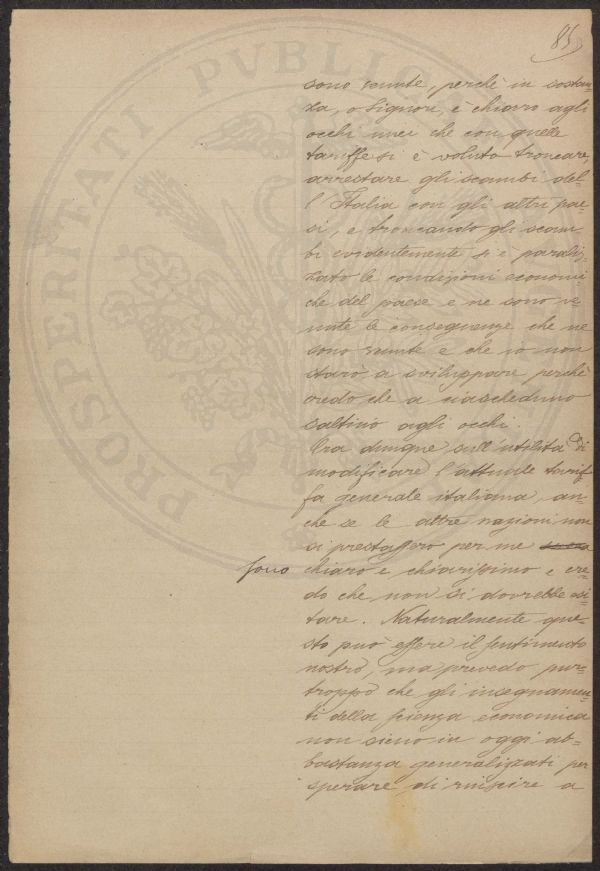 85
sono venute, perchè in sostan=
za, o Signori, è chiaro agli
occhi miei che con quelle
tariffe si è voluto troncare,
arrestare gli scambi del=
l'Italia con gli altri pae=
si, e troncando gli scam=
bi evidentemente si è paraliz=
zato le condizioni economi
che del paese e ne sono ve
nute le conseguenze che ne
sono venute e che io non
starò a sviluppare perchè
credo che a ciascheduno
saltino agli occhi.
Ora dunque sull'utilità di
modificare l'attuale tarif
fa generale italiana, an=
che se le altre nazioni non
si prestassero per me
sono chiaro e chiarissimo e cre=
do che non si dovrebbe esi=
tare. Naturalmente que=
sto può essere il sentimento
nostro, ma prevedo pur=
troppo che gli insegnamen=
ti della scienza economica
non sieno in oggi ab=
bastanza generalizzati per
sperare di riuscire a
PROSPERITATI PUBLICAE